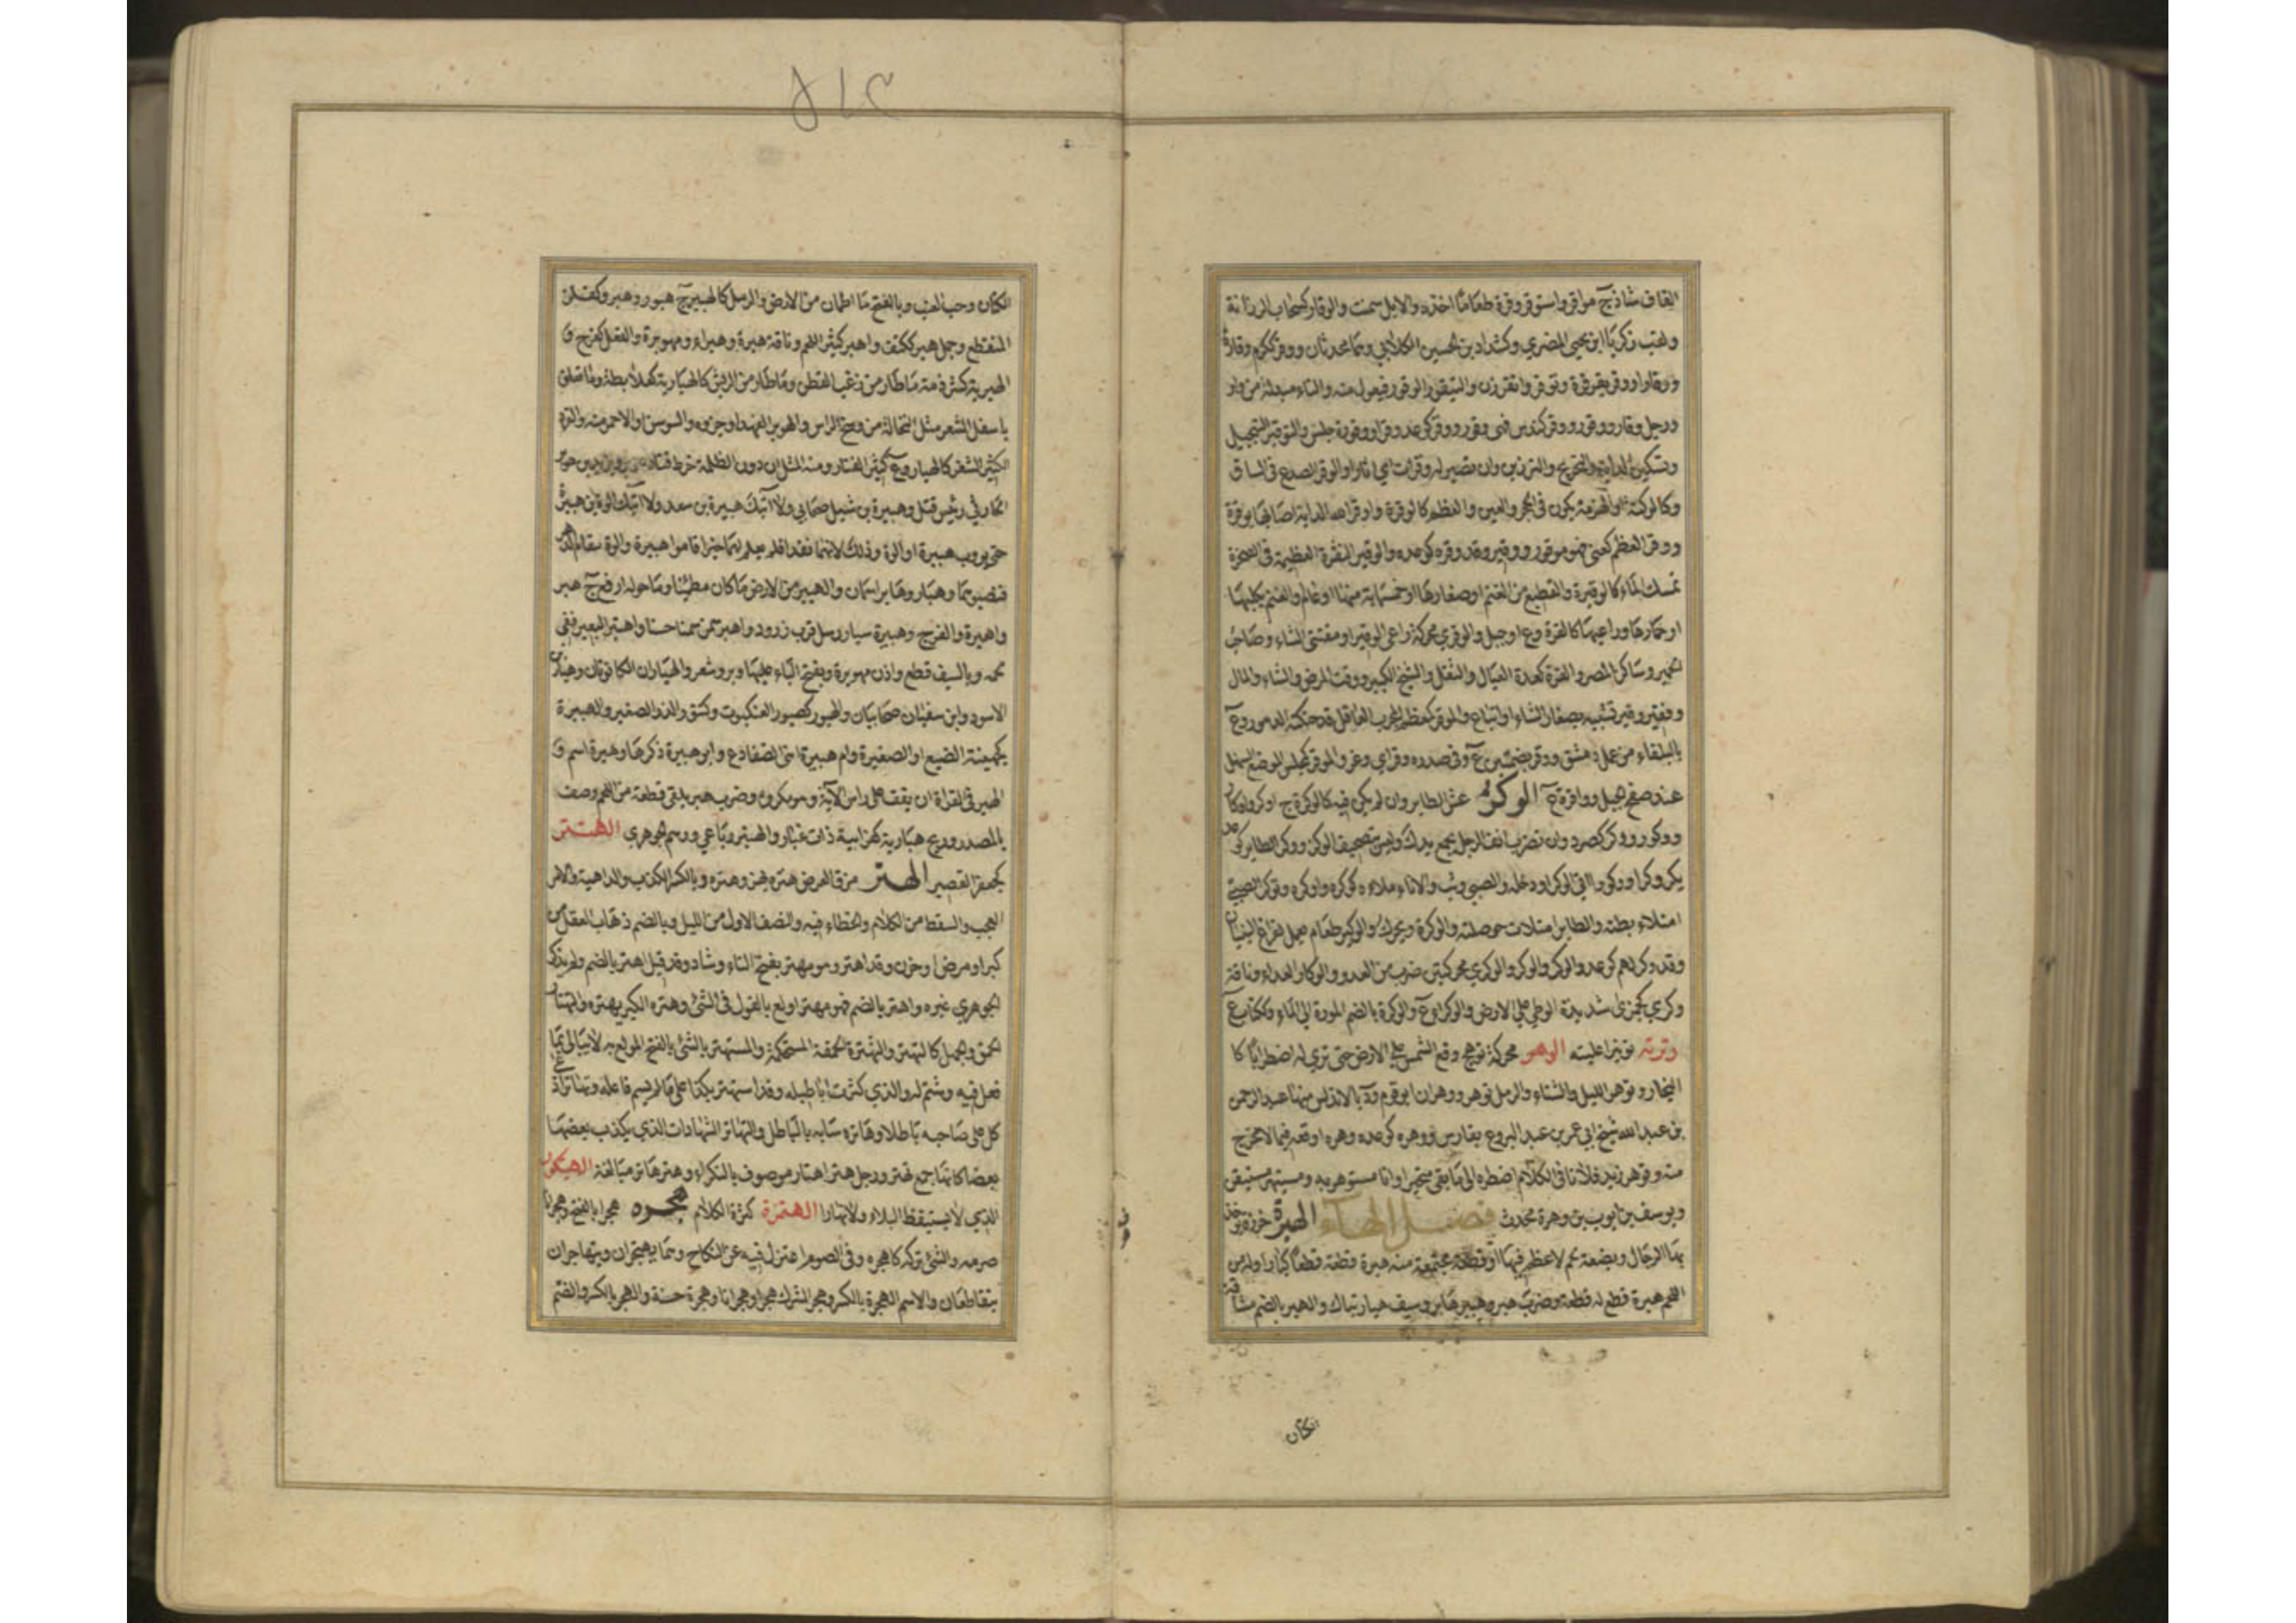 القاف شاذ ج مواقر واستوقر وقره طعاما اخذه والابل سمنت والوقار كسحاب الرزانة
ولقب زكريا ابن يحيى المصري وكشداد بن الحسين الكلابي وهما محدثان ووقر ككرم وقارة
ووقارا ووقر يقر قرة وتوقر واتقر رزن والتيقور الوقور فيعول منه والتاء مبدلة من واو
ورجل وقار ووقور ووقر كندس وهي وقور ووقر كوعد وقرا ووقورة جلس والتوقير التبجيل
وتسكين الدابة والتجريح والتزيين وان تصير له وقرات اي اثارا والوقر الصدع في الساق
وكالوكتة او الهزمة يكون في الحجر والعين والعظم كالوقرة واوقر الله الدابة اصابها بوقرة
ووقر العظم كعني فهو موقور ووقير وقد وقره كوعده والوقير النقرة العظيمة في الصخرة
تمسك الماء كالوقيرة والقطيع من الغنم او صغارها او خمسماية منها او عام او الغنم بكلبها
او حمارها وراعيها كالقرة وع او جبل والوقري محركة راعي الوقير او مقتني الشاء وصاحب
الحمير وساكن المصر والقرة كعدة العيال والثقل والشيخ الكبير ووقت المرض والشاء والمال
وفقير وقير تشبيه بصغار الشاء او اتباع والموقر كمعظم المجرب العاقل قد حنكته الدهور وع
بالبلقاء من عمل دمشق ووقر بضمتين ع وفي صدره وقر اي وغر والموقر كمجلس الموضع السهل
عند صفح الجبل وواقرة ع الوكر عش الطاير وان لم يكن فيه كالوكرة ج اوكر واوكار
ووكور ووكر كصرد وان تضرب انف الرجل بجمع يدك وليس بتصحيف الوكز ووكر الطاير كوعد
يكر وكرا ووكورا اتى الوكر او دخله والصبي وثب والاناء ملاءه كوكره واوكره وتوكر الصبي
امتلاء بطنه والطاير امتلات حوصلته والوكرة ويحرك والوكير طعام يعمل لفراغ البنيان
وقد وكر لهم كوعد والوكر والوكر والوكري محركتين ضرب من العدو والوكار العداء وناقة
وكري كجمزى شديدة الوطي على الارض والوكرا ع والوكرة بالضم الموردة الى الماء وككتاب ع
وترته توتيرا عليته الوهر محركة توهج وقع الشمس على الارض حتى ترى له اضطرابا كا
البخار وتوهر الليل والشتاء والرمل تهور ووهران ابو قوم ود بالاندلس منها عبد الرحمن
بن عبد الله شيخ ابي عمر بن عبد البر وع بفارس ووهره كوعده وهره اوقعه فيما لا مخرج
منه وتوهر زيد فلانا في الكلام اضطره الى ما بقي متحيرا وانا مستوهر به ومستيهر مستيقن
ويوسف بن ايوب بن وهرة محدث فصل الهاء الهبرة خرزة يؤخذ
بها الرجال وبضعة لحم لا عظم فيها او قطعة مجتمعة منه هبره قطعه قطعا كبارا وله من
اللحم هبرة قطع له قطعة وضرب هبر وهبير هابر وسيف هبار بتاك والهبر بالضم مشاقة
الكتان
الكتان وحب العنب وبالفتح ما اطمان من الارض والرمل كالهبير ج هبور وهبر وكفلز
المنقطع وجمل هبر ككتف واهبر كثير اللحم وناقة هبرة وهبراء ومهوبرة والفعل كفرح و
الهبرية كشرذمة ما طار من زغب القطن وما طار من الريش كالهبارية كعلابطة وما تعلق
باسفل الشعر مثل النخالة من وسخ الراس والهوبر الفهد او جروه والسوسن او الاحمر منه والقرد
الكثير الشعر كالهبار وع كثير القتاد ومنه المثل ان دون الظلمة خرط قتاد هوبر ويزيد بن هوبر
الحارثي رئيس قتل وهبيرة بن شبل صحابي ولا آتيك هبيرة بن سعد ولا آتيك الوة بن هبيرة
حتى يوب هبيرة او الوة وذلك لانهما فقدا فلم يعلم لهما خبر اقاموا هبيرة والوة مقام الدهر
فنصبوهما وهبار وهابر اسمان والهبير من الارض ما كان مطمئنا وما حوله ارفع ج هبر
واهبرة والفرج وهبيرة سيار رمل قرب زرود واهبر سمن سمنا حسنا واهتبر البعير فني
لحمه وبالسيف قطع واذن مهوبرة وبفتح الباء عليها وبر وشعر والهباران الكانونان وهبار بن
الاسود وابن سفيان صحابيان والهبور كصبور العنكبوت وكتنور الذر الصغير والهبيرة
كجهينة الضبع او الصغيرة وام هبيرة انثى الضفادع وابو هبيرة ذكرها وهبيرة اسم و
الهبر في القراءة ان يقف على راس الاية وهو مكروه وضرب هبر يلقي قطعة من اللحم وصف
بالمصدر وريح هبارية كفراسية ذات غبار والهبتر رباعي ووهم الجوهري الهبتر
كجعفر القصير الهتر مزق العرض هتره يهتره وهتره وبالكسر الكذب والداهية والامر
العجب والسقط من الكلام والخطاء فيه والنصف الاول من الليل وبالضم ذهاب العقل من
كبر او مرض او حزن وقد اهتر وهو مهتر بفتح التاء وشاذ وقد قيل اهتر بالضم ولم يذكر
الجوهري غيره واهتر بالضم فهو مهتر اولع بالقول في الشئ وهتره الكبر يهتره والتهتار
الحمق والجهل كالتهتر والهترة الحمقة المستحكمة والمستهتر بالشئ بالفتح المولع به لا يبالي بما
فعل فيه وشتم له والذي كثرت اباطيله وقد استهتر بكذا على ما لم يسم فاعله وتهاترا ادعى
كل على صاحبه باطلا وهاتره سابه بالباطل والتهاتر الشهادات الذي يكذب بعضها
بعضا كانها جمع تهتر ورجل هتر اهتار موصوف بالنكراء وهتر هاتر مبالغة الهتكور
الذي لا يستيقظ ليلا ولا نهارا الهتمرة كثرة الكلام هجره هجرا بالفتح وهجرانا
صرمه والشئ تركه كاهجره وفي الصوم اعتزل فيه عن النكاح وهما يهتجران ويتهاجران
يتقاطعان والاسم الهجرة بالكسر وهجر الشرك هجرا وهجرانا وهجرة حسنة والهجر بالكسر والضم